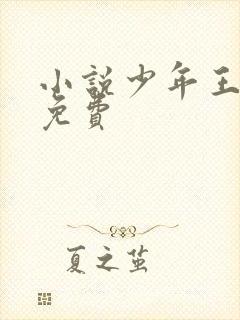 小說少年王
免費
夏之茧